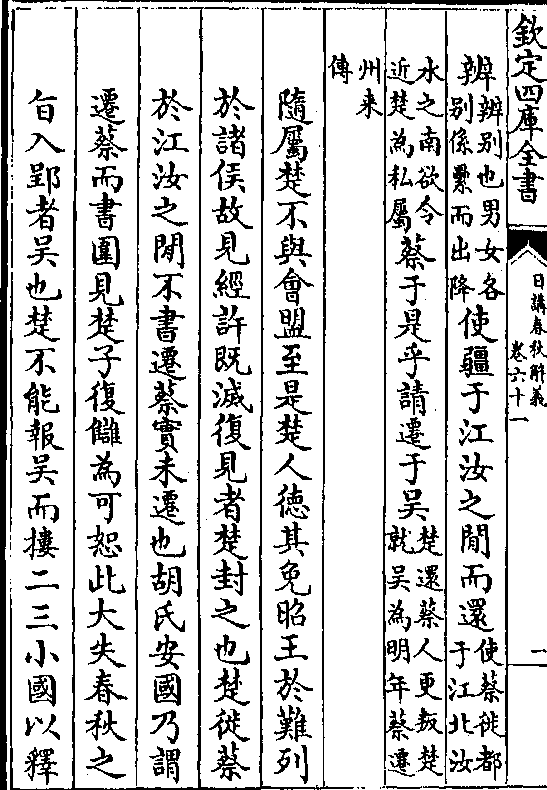 欽定四庫全書
日講春秋解義
卷六十一
一
辨辨别也男女各
别係纍而出降使疆于江汝之閒而還使蔡徙都
于江北汝
水之南欲令
近楚為私屬蔡于是乎請遷于吳楚還蔡人更叛楚
就吳為明年蔡遷
州来
傳
隨屬楚不與會盟至是楚人徳其免昭王於難列
於諸侯故見經許既滅復見者楚封之也楚徙蔡
於江汝之閒不書遷蔡實未遷也胡氏安國乃謂
遷蔡而書圍見楚子復讎為可恕此大失春秋之
㫖入郢者吳也楚不能報吳而摟二三小國以釋